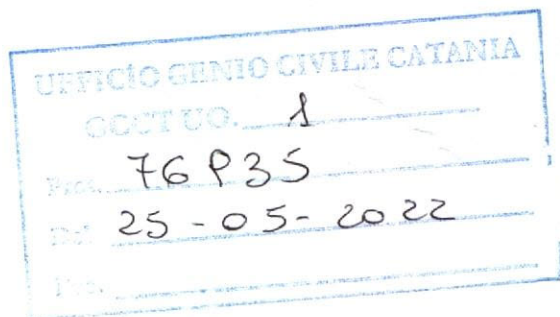 UFFICIO GENIO CIVILE CATANIA
GCCT UO. 1
Prot. 76935
Del 25-05-2022